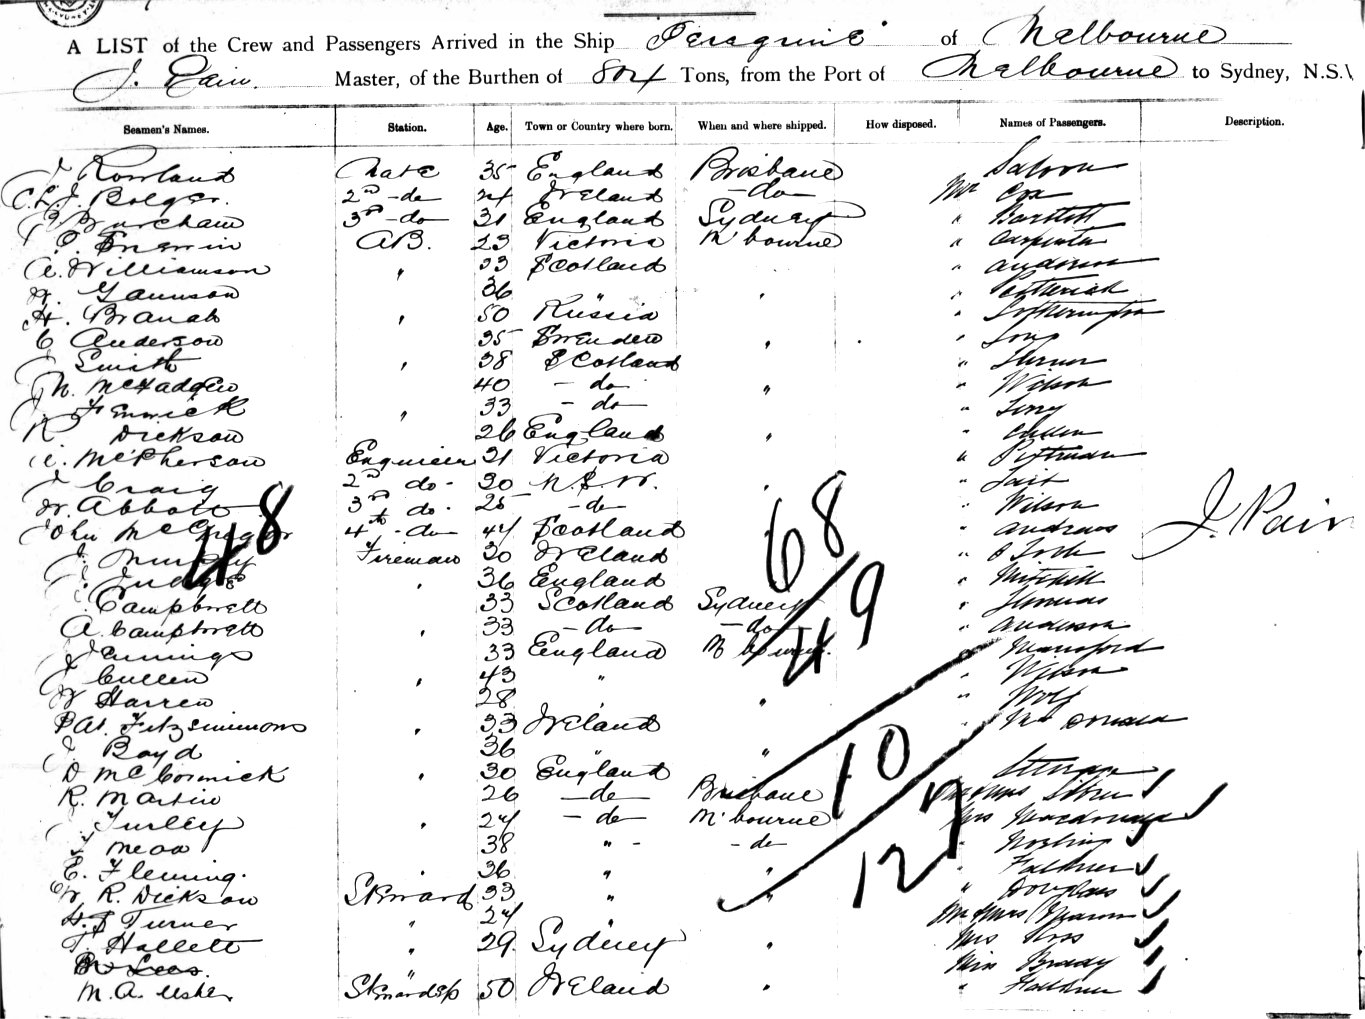 A LIST of the Crew and Passengers Arrived in the Ship Peregrine of Melbourne
Master, of the Burthen of Tons, from the Port of Melbourne to Sydney, N.S.
Seamen's Names. Station. Age. Town or Country where born. When and where shipped. How disposed. Names of Passengers. Description.
J Rowland Mate 35 England Brisbane Saloon
C. L. J. Bolger. 2nd - do 24 Ireland - do Mr Cox
Burcham 3rd - do 31 England Sydney " Bartlett
A.B. 23 Victoria M'bourne " Carpenter
A. Williamson " 33 Scotland " Anderson
36 " "
H. Branab " 50 Russia " Sotherington
C Anderson 35 Sweeden " " Long
J Smith " 38 Scotland " Turner
N. McFadgen 40 - do " " Wilson
J Fenwick " 33 - do " Long
R Dickson 26 England " " Cullen
A. McPherson Enguieer 31 Victoria " Pittman
J Craig 2nd do - 30 N.S.W. " " Tait
W. Abbott 3rd do - 25 - do " Wilson
John McGregor 4th - do 44 Scotland " Andrews
J. Murphy Fireman 30 Ireland "
J. Judge " 36 England " Mitchell
J. Campbell 33 Scotland Sydney " Thomas
A. Campbell " 33 - do - do " Anderson
J Jennings 33 England M'bourne. " Mansford
J Cullen " 43 " " Wilson
W Harren 28 " " Wolf
Pat. Fitzsimmons " 33 Ireland "
J Boyd 36 " "
D McCormick " 30 England
R. Martin 26 - do Brisbane Mr & Mrs
J Turley " 24 - do M'bourne Mrs Macdonald
J Mead 38 " - - do "
E. Fleming. " 36 " " " Faulkner
W R. Dickson Steward 33 " " Douglas
H. S Turner " 24 Mr & Mrs
T. Hallett " 29. Sydney " Mrs Ross
Lees. " Miss Brady
M. A. Usher Stewardess 50 Ireland " " Faulkner
48
68
49
10
127